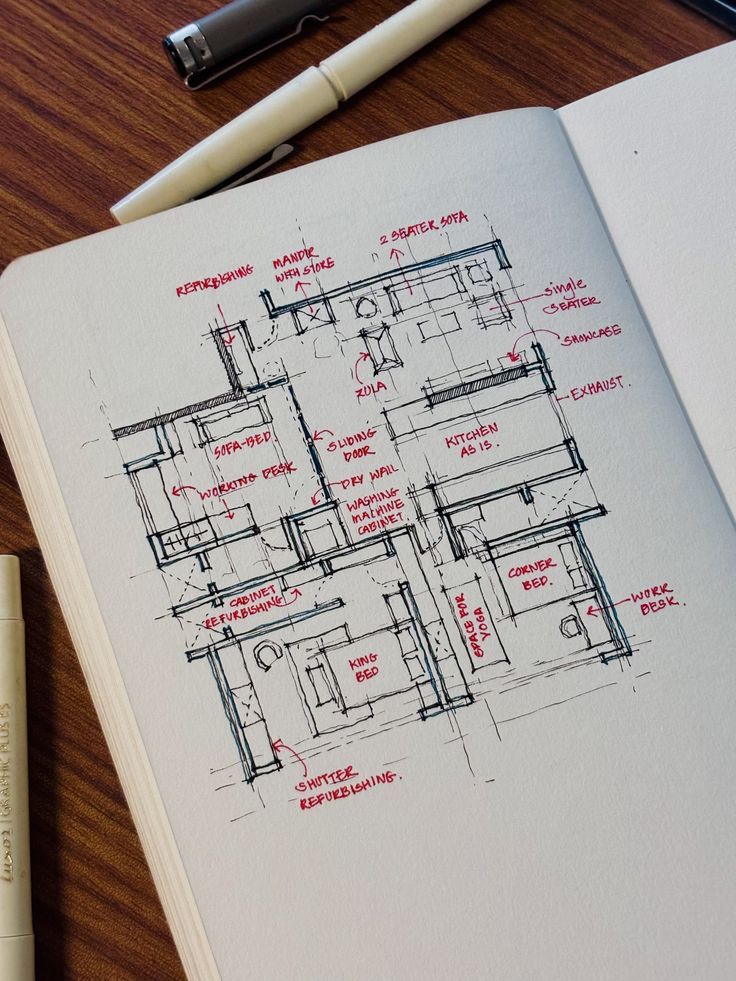 2 SEATER SOFA
MANDIR
WITH STORE
REFURBISHING
single
SEATER
SHOWCASE
ZULA
EXHAUST.
SOFA-BED.
SLIDING
DOOR
KITCHEN
AS IS.
WORKING DESK
DRY WALL
WASHING
MACHINE
CABINET
CORNER
BED.
CABINET
REFURBISHING
WORK
DESK.
SPACE FOR
YOGA
KING
BED
SHUTTER
REFURBISHING.
Luxor | GRAPHIC PLUS 05